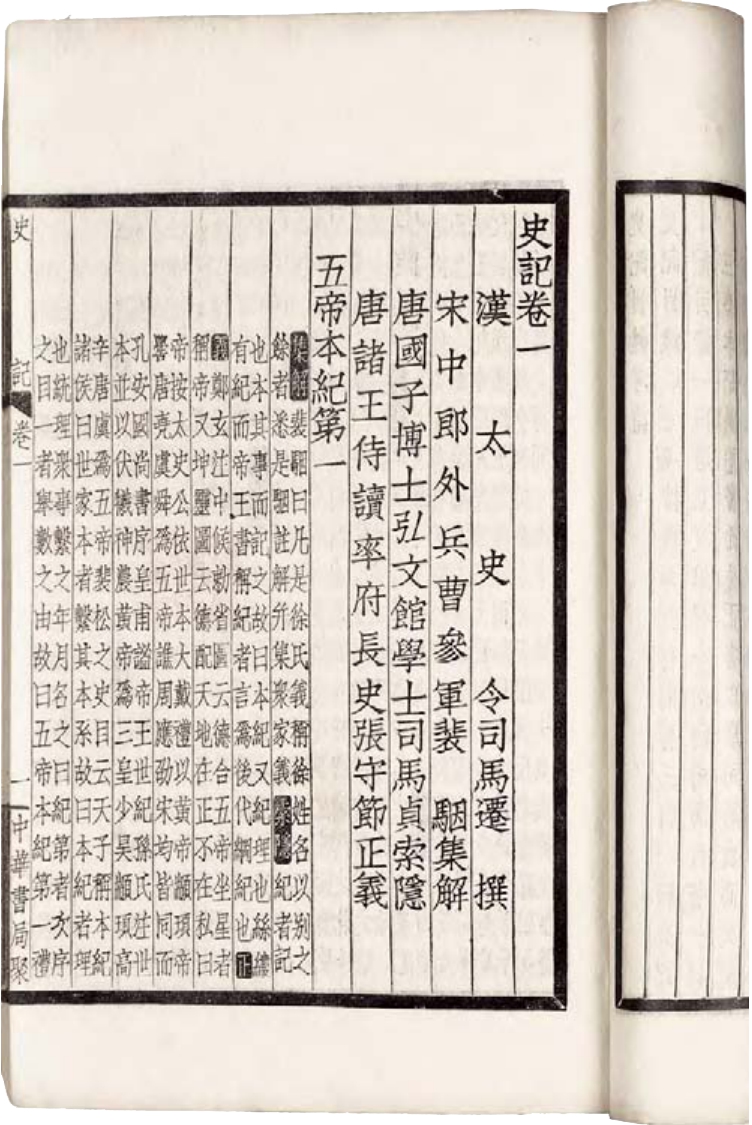 史記卷一
漢太史令司馬遷撰
宋中郎外兵曹參軍裴駰集解
唐國子博士弘文館學士司馬貞索隱
唐諸王侍讀率府長史張守節正義
五帝本紀第一
集解裴駰曰凡是徐氏義稱徐姓名以別之
餘者悉是駰註解并集衆家義索隱紀者記
也本其事而記之故曰本紀又紀理也絲縷
有紀而帝王書稱紀者言爲後代綱紀也正
義鄭玄注中候勑省圖云德合五帝坐星者
稱帝又坤靈圖云德配天地在正不在私曰
帝按太史公依世本大戴禮以黃帝顓頊帝
嚳唐堯虞舜爲五帝譙周應劭宋均皆同而
孔安國尚書序皇甫謐帝王世紀孫氏注世
本並以伏犧神農黃帝爲三皇少昊顓頊高
辛唐虞爲五帝裴松之史目云天子稱本紀
諸侯曰世家本者繫其本系故曰本紀者理
也統理衆事繫之年月名之曰紀第者次序
之目一者舉數之由故曰五帝本紀第一禮
史記 卷一 一 中華書局聚